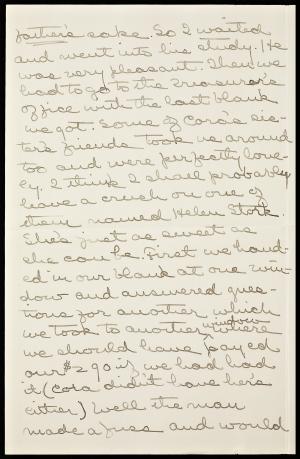 father's sake. So I waited
and went into his study. He
was very pleasant. Then we
had to go to the Treasurer's
office with the last blank
we got. Some of Cora's sis-
ter's friends took us around
too and were perfectly love-
ly. I think I shall probably
have a crush on one of
them named Helen Stork.
She's just as sweet as
she can be. First we hand-
ed in our blank at one win-
dow and answered ques-
tions for another which
we took to another window where
we should have payed
our $290 if we had had
it (Cora didn't have her's
either) Well the man
made a fuss and would